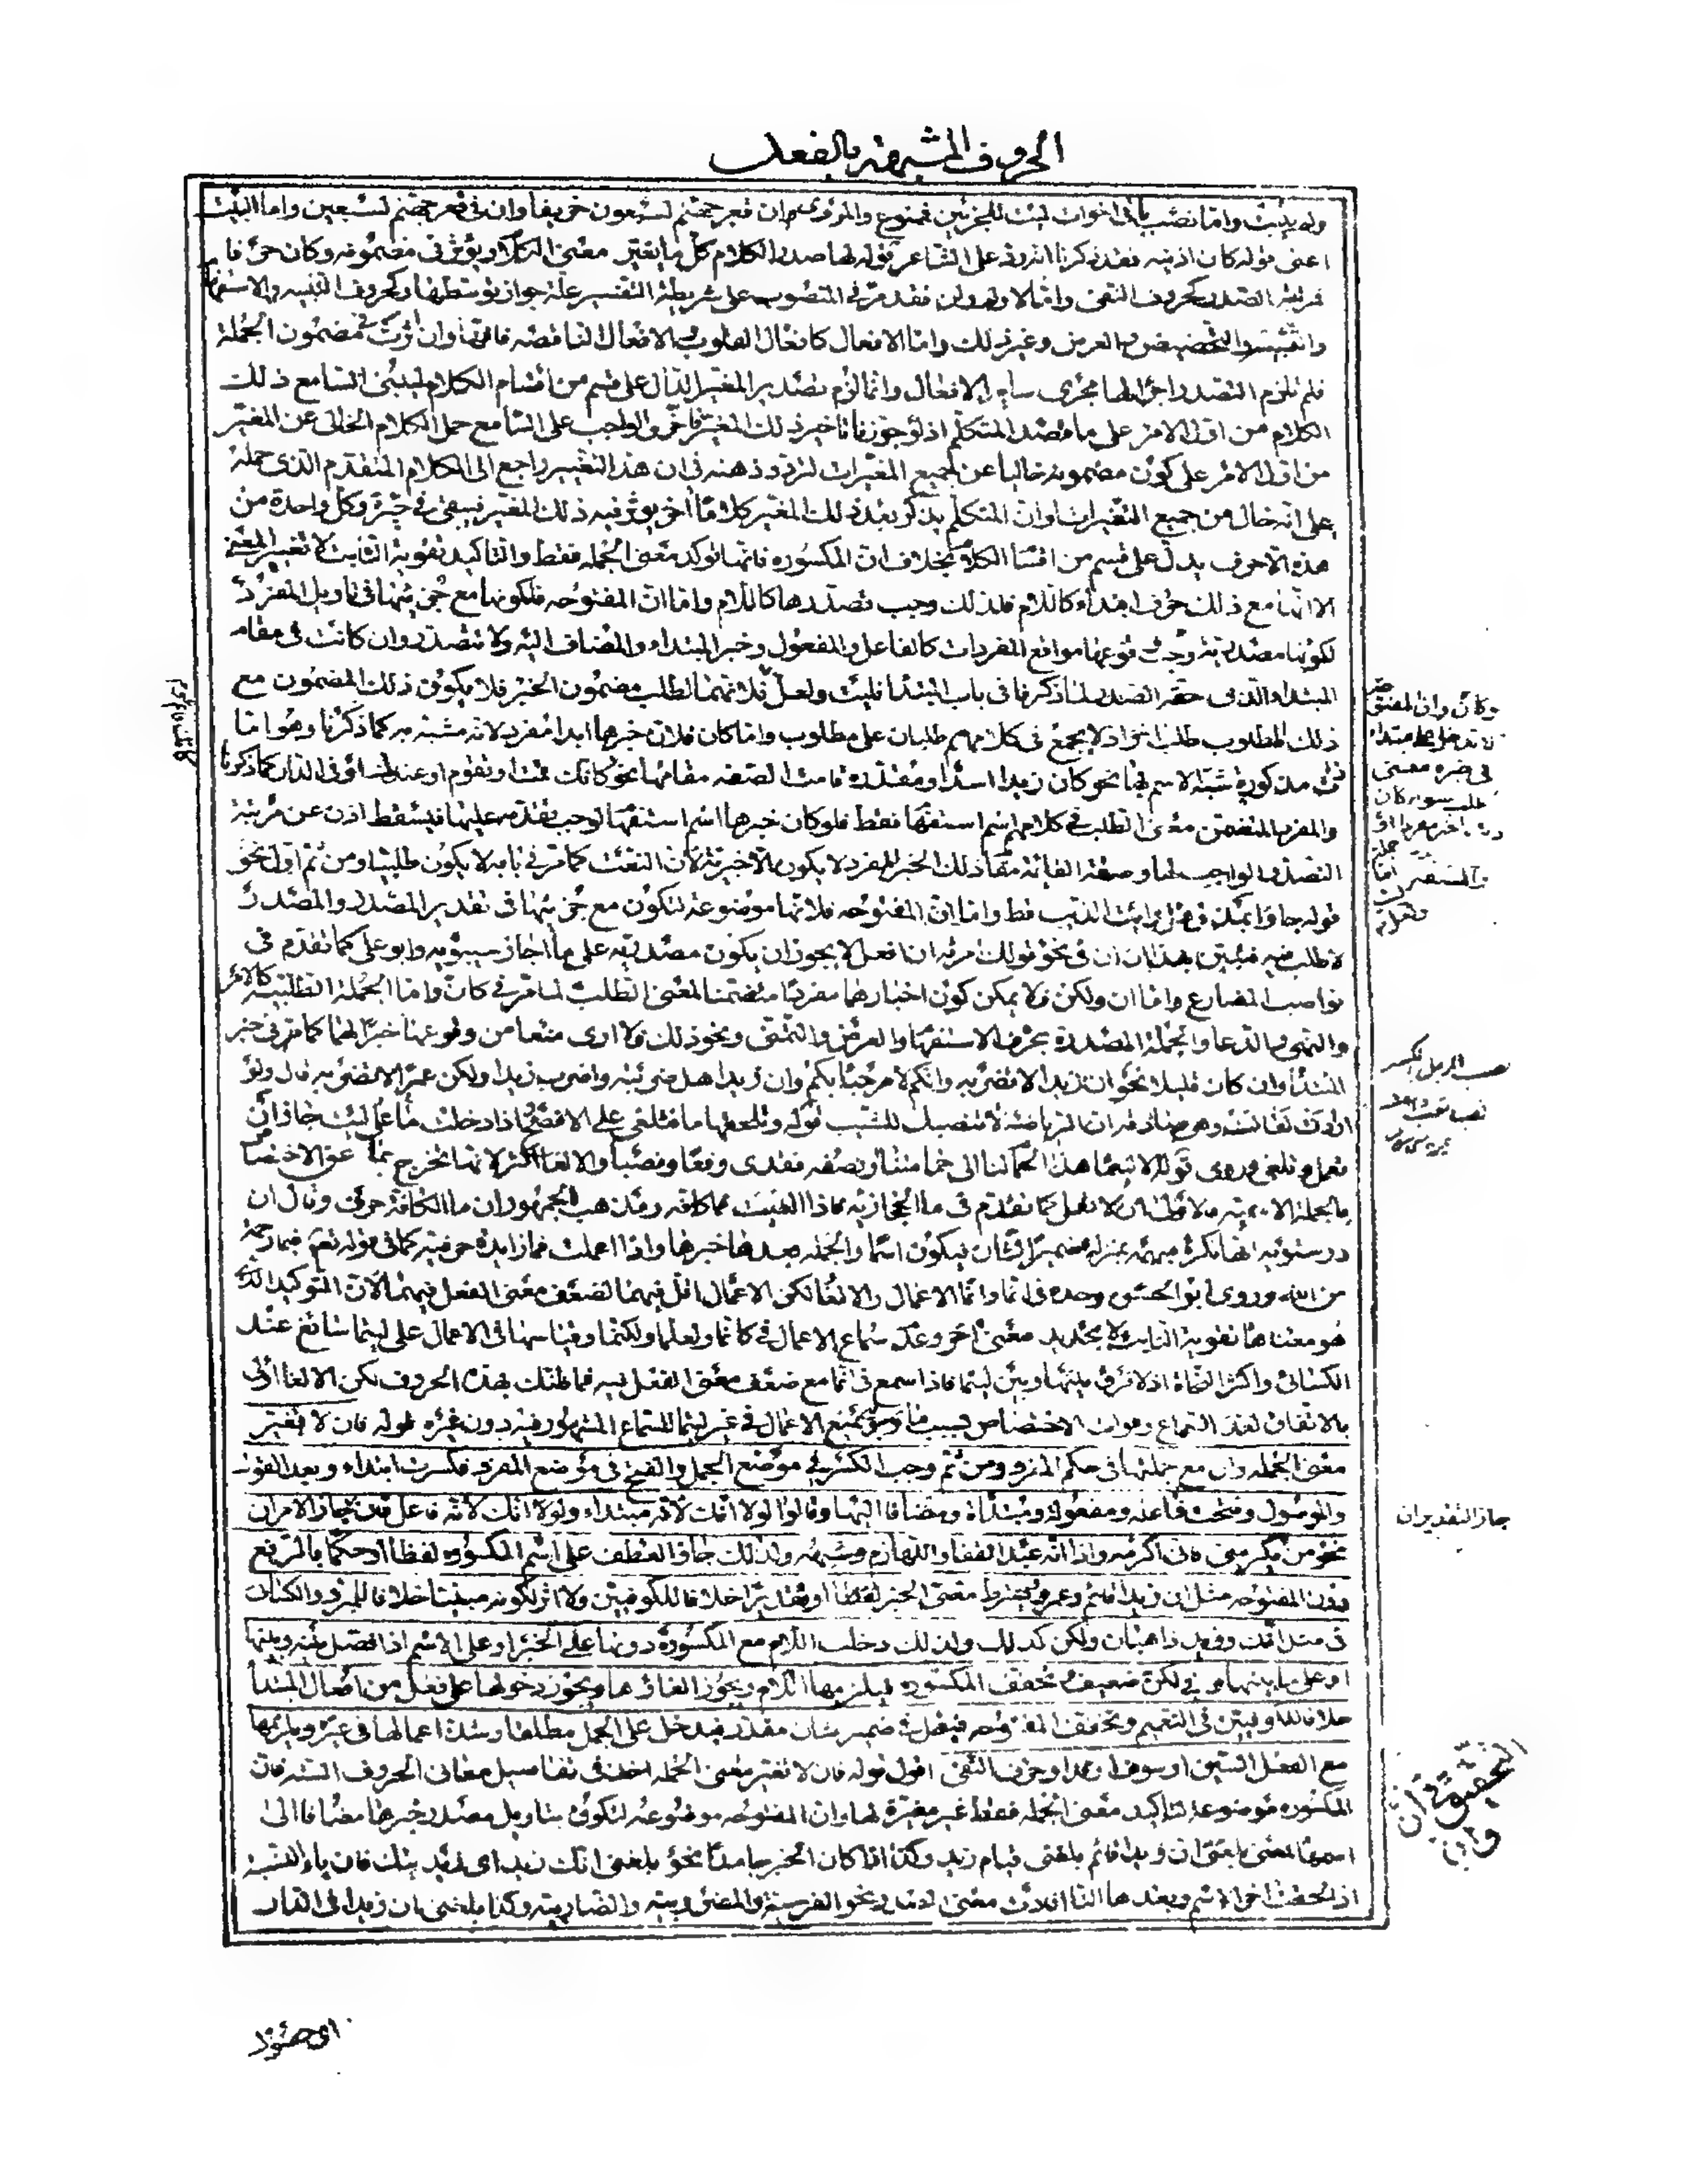 الحروف المشبهة بالفعل
وله يثبت واما نصب باقى اخوات ليت للجزئين فممنوع والمروى ان قعر جهنم لسبعون خريفا وان فى قعر جهنم لسبعين واما البيت
اعنى قوله كان اذنيه فقد ذكرنا انه رد على الشاعر قوله لها صدر الكلام كل ما يغير معنى الكلام ويؤثر فى مضمونه وكان حرفا
فمرتبته الصدر كحروف النفى واما لا ولم ولن فقد مر فى المنصوب على شريطة التفسير علة جواز توسطها وكحروف التنبيه والاستفهام
والتشبيه والتحضيض والعرض وغير ذلك واما الافعال كافعال القلوب والافعال الناقصة فانها وان اثرت فى مضمون الجملة
فلم تلزم التصدر اجراء لها مجرى سائر الافعال وانما لزم تصدير المغير الدال على قسم من اقسام الكلام ليبنى السامع ذلك
الكلام من اول الامر على ما قصد المتكلم اذ لو جوزنا تاخير ذلك المغير فاخر والواجب على السامع حمل الكلام الخالى عن المغير
من اول الامر على كون مضمونه خاليا عن جميع المغيرات لتردد ذهنه فى ان هذا التغيير راجع الى الكلام المتقدم الذى حمله
على انه خال من جميع المغيرات او ان المتكلم يذكر بعد ذلك المغير كلاما اخر يؤثر فيه ذلك المغير فيبقى فى حيرة وكل واحدة من
هذه الاحرف يدل على قسم من اقسام الكلام بخلاف ان المكسورة فانها تؤكد معنى الجملة فقط والتاكيد تقوية الثابت لا تغيير المعنى
الا انها مع ذلك حرف ابتداء كاللام فلذلك وجب تصدرها كاللام واما ان المفتوحة فلكونها مع جزئيها فى تاويل المفرد
لكونها مصدرية وجب وقوعها مواقع المفردات كالفاعل والمفعول وخبر المبتداء والمضاف اليه ولا تتصدر وان كانت فى مقام
المبتداء الذى حقه الصدر لما ذكرنا فى باب المبتدا فليت ولعل فلانهما لطلب مضمون الخبر فلا يكون ذلك المضمون مع
ذلك المطلوب طلبا اخر اذ لا يجمع فى كلامهم طلبان على مطلوب واما كان فلان خبرها ابدا مفرد لانه مشبه به كما ذكرنا وهو اما
مذكور شبه الاسم بها نحو كان زيدا اسد او مقدر قامت الصفة مقامه نحو كانك قمت او تقوم او عندك او فى الدار كما ذكرنا
والمفرد المتضمن معنى الطلب فى كلامهم اسم استفهام فقط فلو كان خبرها اسم استفهام لوجب تقدمه عليها فيسقط اذن عن مرتبة
التصدر الواجب لها وصفة القائمة مقام ذلك الخبر المفرد لا يكون الا خبرية لان النعت كما مر فى بابه لا يكون طلبيا ومن ثم اول نحو
قوله جاؤا بمذق هل رايت الذئب قط واما ان المفتوحة فلانها موضوعة لتكون مع جزئيها فى تقدير المصدر والمصدر
لا طلب فيه فتبين بهذا ان ان فى نحو قولك امرته ان افعل لا يجوز ان يكون مصدرية على ما اجاز سيبويه وابو على كما تقدم فى
نواصب المضارع واما ان ولكن فلا يمكن كون اخبارهما مفردا متضمنا لمعنى الطلب لما مر فى كان واما الجملة الطلبية كالامر
والنهى والدعا والجملة المصدرة بحرف الاستفهام والعرض والتمنى ونحو ذلك فلا ارى منعا من وقوعها خبرا لهما كما مر فى خبر
المبتدا وان كان قليلا نحو ان زيدا لا تضربه وانكم لا مرحبا بكم وان زيدا هل ضربته واضرب زيدا ولكن عمرا لا تضربه قال ولو
اردت نقا وهو ان الرياضة لا تنصبك للشيب قوله وتلحقها ما فتلغى على الافصح اذا دخلت ما على ليت جاز ان
تعمل وتلغى وروى قوله الا ليتما هذا الحمام لنا الى حمامتنا او نصفه فقدى رفعا ونصبا والالغا اكثر لانها تخرج بما عن الاختصاص
بالجملة الاسمية فالاولى ان لا تعمل كما تقدم فى ما الحجازية فاذا الغيت فما كافة ومذهب الجمهور ان ما الكافة حرف وقال ابن
درستويه انها نكرة مبهمة بمنزلة ضمير الشان فيكون اسما والجملة بعدها خبرها واذا اعملت فما زايدة حرفية كما فى قوله تعم فبما رحمة
من الله وروى ابو الحسن وحده فى انما وانما الاعمال والالغا لكن الاعمال اقل فيهما لضعف معنى الفعل فيهما لان التوكيد الذى
هو معناها تقوية الثابت لا تجديد معنى اخر وعدم سماع الاعمال فى كانما ولعلما ولكنما وقياسها فى الاعمال على ليتما شائع عند
الكسائى واكثر النحاة اذ لا فرق بينها وبين ليتما فاذا سمع فى انما مع ضعف معنى الفعل فيه فما ظنك بهذه الحروف لكن الالغا اولى
بالاتفاق لعدم السماع وفوات الاختصاص بسبب ما وسيبويه يمنع الاعمال فى غير ليتما للسماع المشهور فيه دون غيره قوله فان لا تغير
معنى الجملة وان مع جملتها فى حكم المفرد ومن ثم وجب الكسر فى موضع الجمل والفتح فى موضع المفرد فكسرت ابتداء وبعد القول
والموصول وفتحت فاعلة ومفعولة ومبتداة ومضافا اليها وقالوا لولا انك لانه مبتداء ولو انك لانه فاعل فان جاز الامران
نحو من يكرمنى فانى اكرمه واذا انه عبد القفا واللهازم وشبهه ولذلك جاز العطف على اسم المكسورة لفظا او حكما بالرفع
دون المفتوحة مثل ان زيدا قائم وعمرو ويشترط مضى الخبر لفظا او تقديرا خلافا للكوفيين ولا اثر لكونه مبنيا خلافا للمبرد والكسائى
فى مثل انك وزيد ذاهبان ولكن كذلك ولذلك دخلت اللام مع المكسورة دونها على الخبر او على الاسم اذا فصل بينه وبينها
او على ما بينهما وفى لكن ضعيف وتخفف المكسورة فيلزمها اللام ويجوز الغاؤها ويجوز دخولها على فعل من افعال المبتدا
خلافا للكوفيين فى التعميم وتخفف المفتوحة فيعمل فى ضمير شان مقدر فيدخل على الجمل مطلقا وشذ اعمالها فى غيره ويلزمها
مع الفعل السين او سوف او قد او حرف النفى اقول قوله فان لا تغير معنى الجملة اخذ فى تفاصيل معانى الحروف الستة فان
المكسورة موضوعة لتاكيد معنى الجملة فقط غير مغيرة لها وان المفتوحة موضوعة لتكون بتاويل مصدر خبرها مضافا الى
اسمها فمعنى بلغنى ان زيدا قائم بلغنى قيام زيد وكذا اذا كان الخبر جامدا نحو بلغنى انك زيد اى زيديتك فان ياء النسبة
اذا لحقت اخر الاسم وبعدها التا افادت معنى المصدر نحو الفرسية والمضروبية والضاربية وكذا بلغنى ان زيدا فى الدار
جاز التقديران
التحقيق فى ان
وان
اى حصول